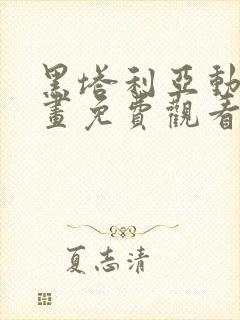 黑塔利亞動
畫免費觀看
夏志清